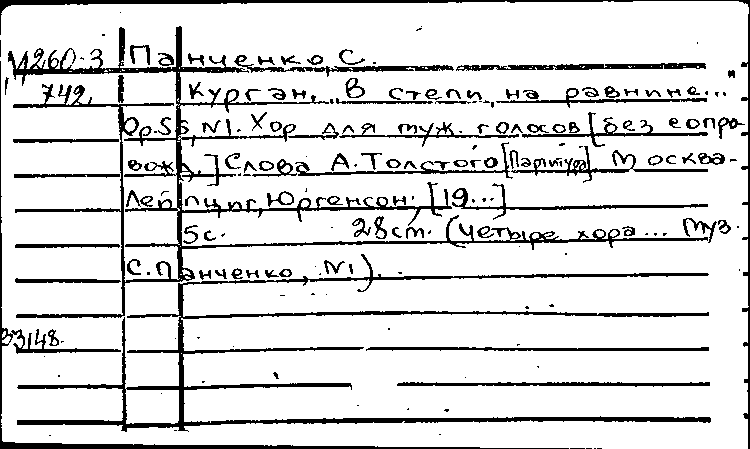 М260-3 Панченко, С.
742. Курган. „В степи, на равнине..."
Op. 55, N1. Хор для муж. голосов [без сопро-
вожд.] Слова А. Толстого [Партитура] Москва-
Лейпциг, Юргенсон, [19...]
5с. 28ст. (Четыре хора... Муз.
С. Панченко, N1).
33148.